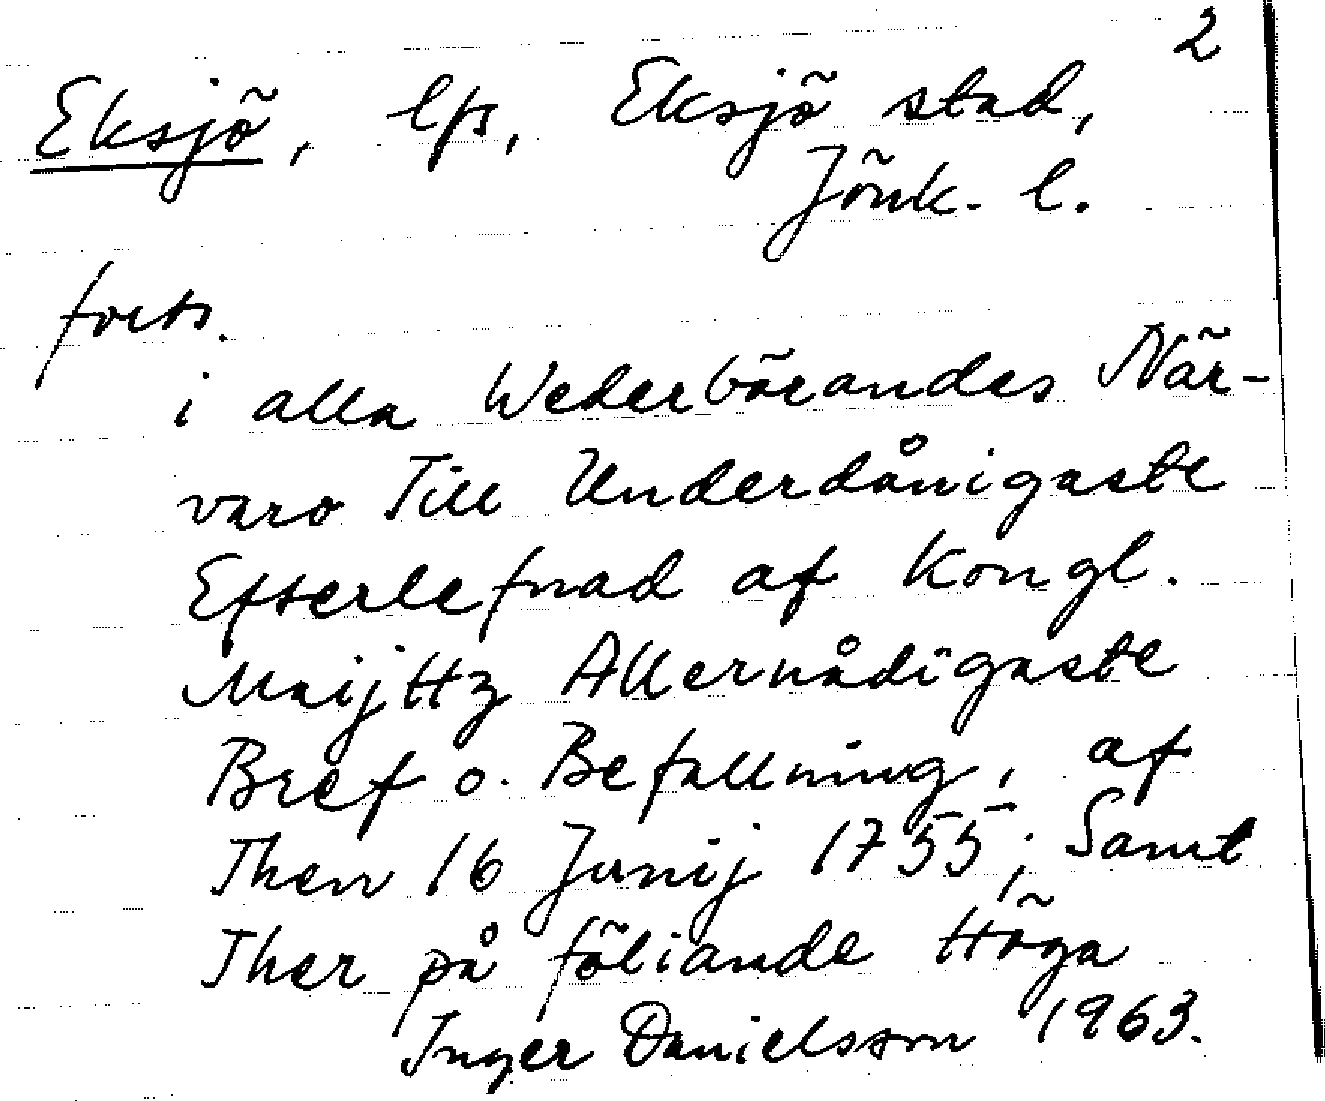 2
Eksjö, lfs, Eksjö stad,
Jönk. l.
forts.
i alla Wederbörandes När-
varo Till Underdånigaste
Efterlefnad af Kongl.
Maijttz Allernådigaste
Bref o. Befallning, af
Then 16 Junij 1755; Samt
Ther på följande Höga
Inger Danielsson 1963.